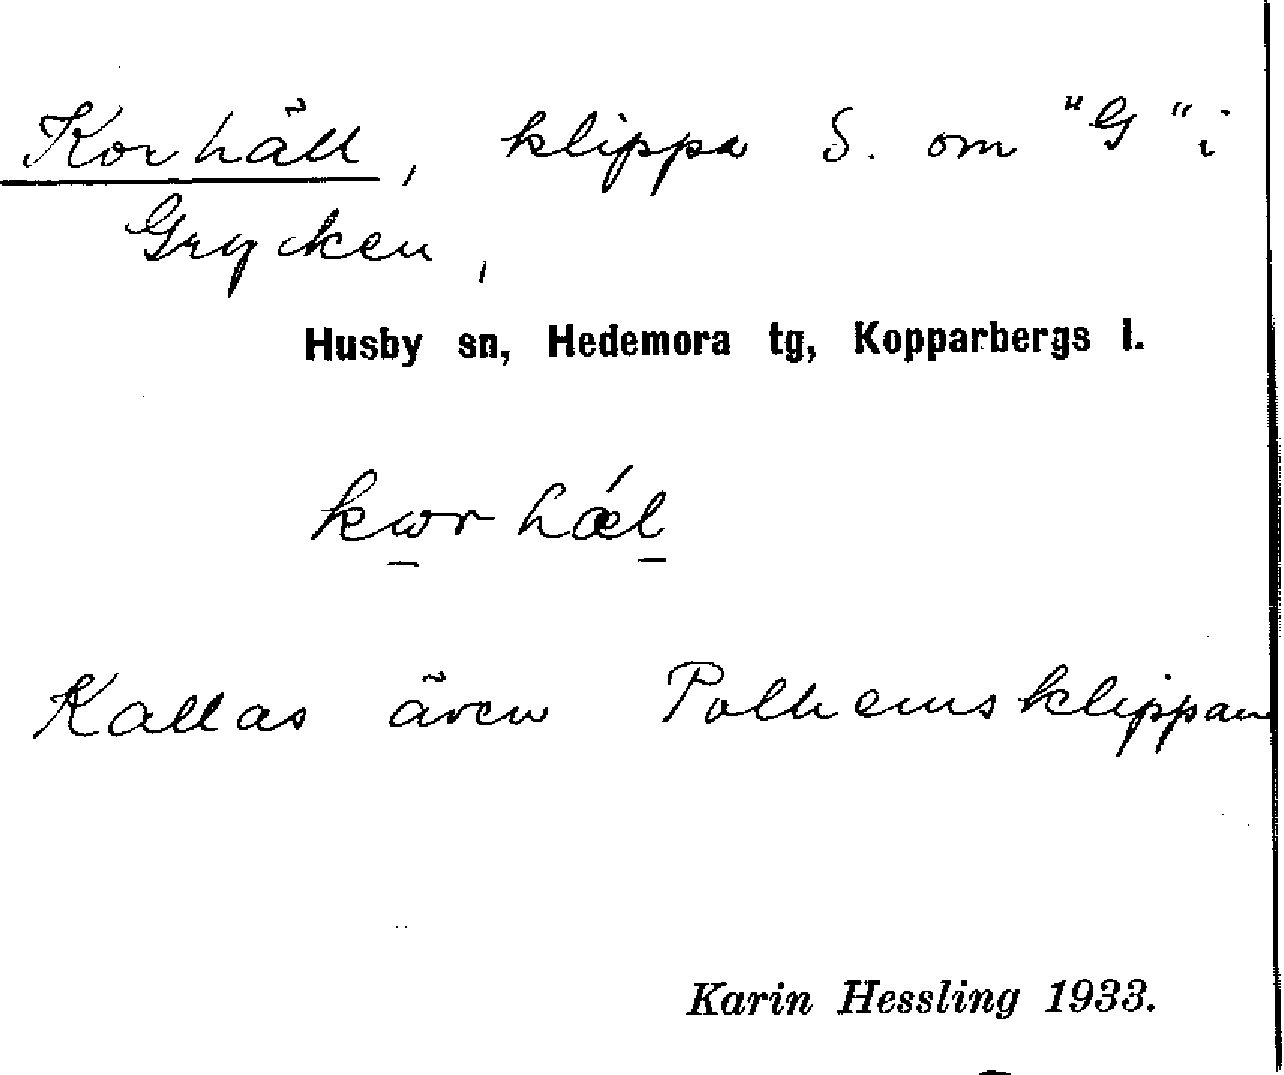 Korhäll, klippa S. om "G" i
Grycken,
Husby sn, Hedemora tg, Kopparbergs l.
kωr hǽl
Kallas även Polhemsklippan
Karin Hessling 1933.